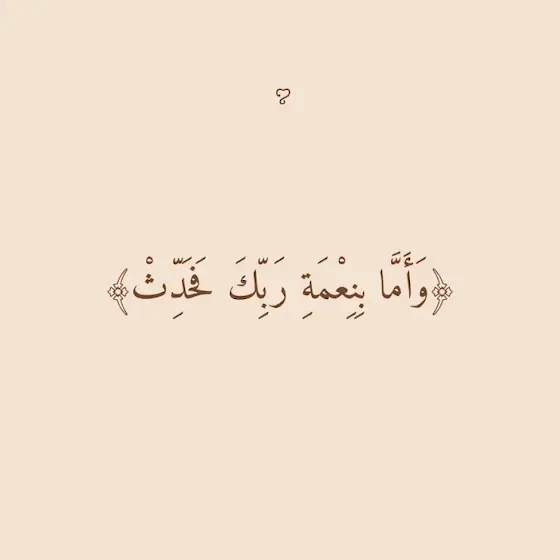 ღ
﴿وَأَمَّا بِنِعْمَةِ رَبِّكَ فَحَدِّثْ﴾